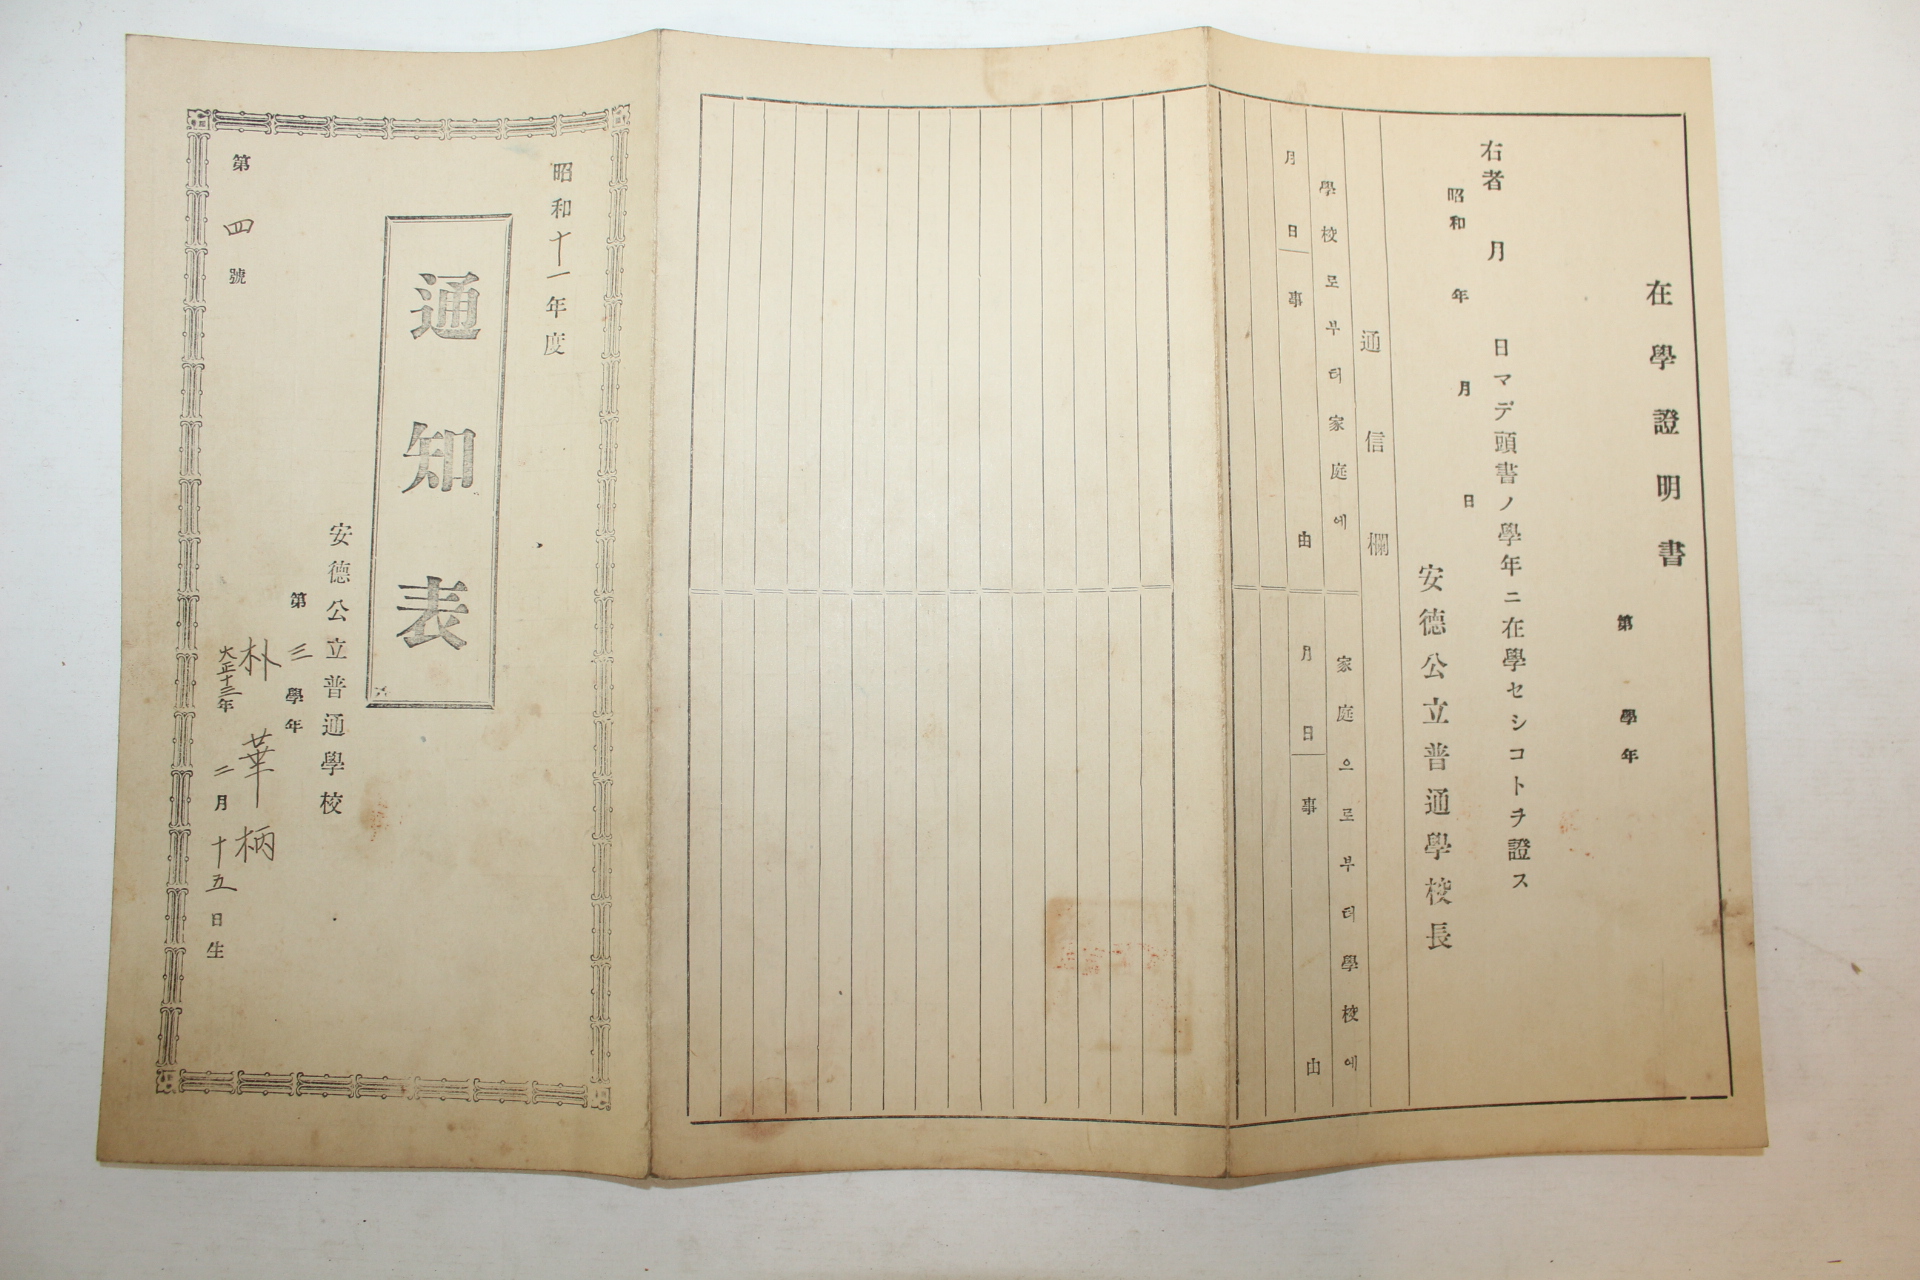 在學證明書
第 學年
右者 月 日マデ頭書ノ學年ニ在學セシコトヲ證ス
昭和 年 月 日
安德公立普通學校長
通信欄
學校로부터家庭에
家庭으로부터學校에
月日 事由
月日 事由
昭和十一年度
通知表
安德公立普通學校
第三學年
朴華柄
大正十三年二月十五日生
第四號